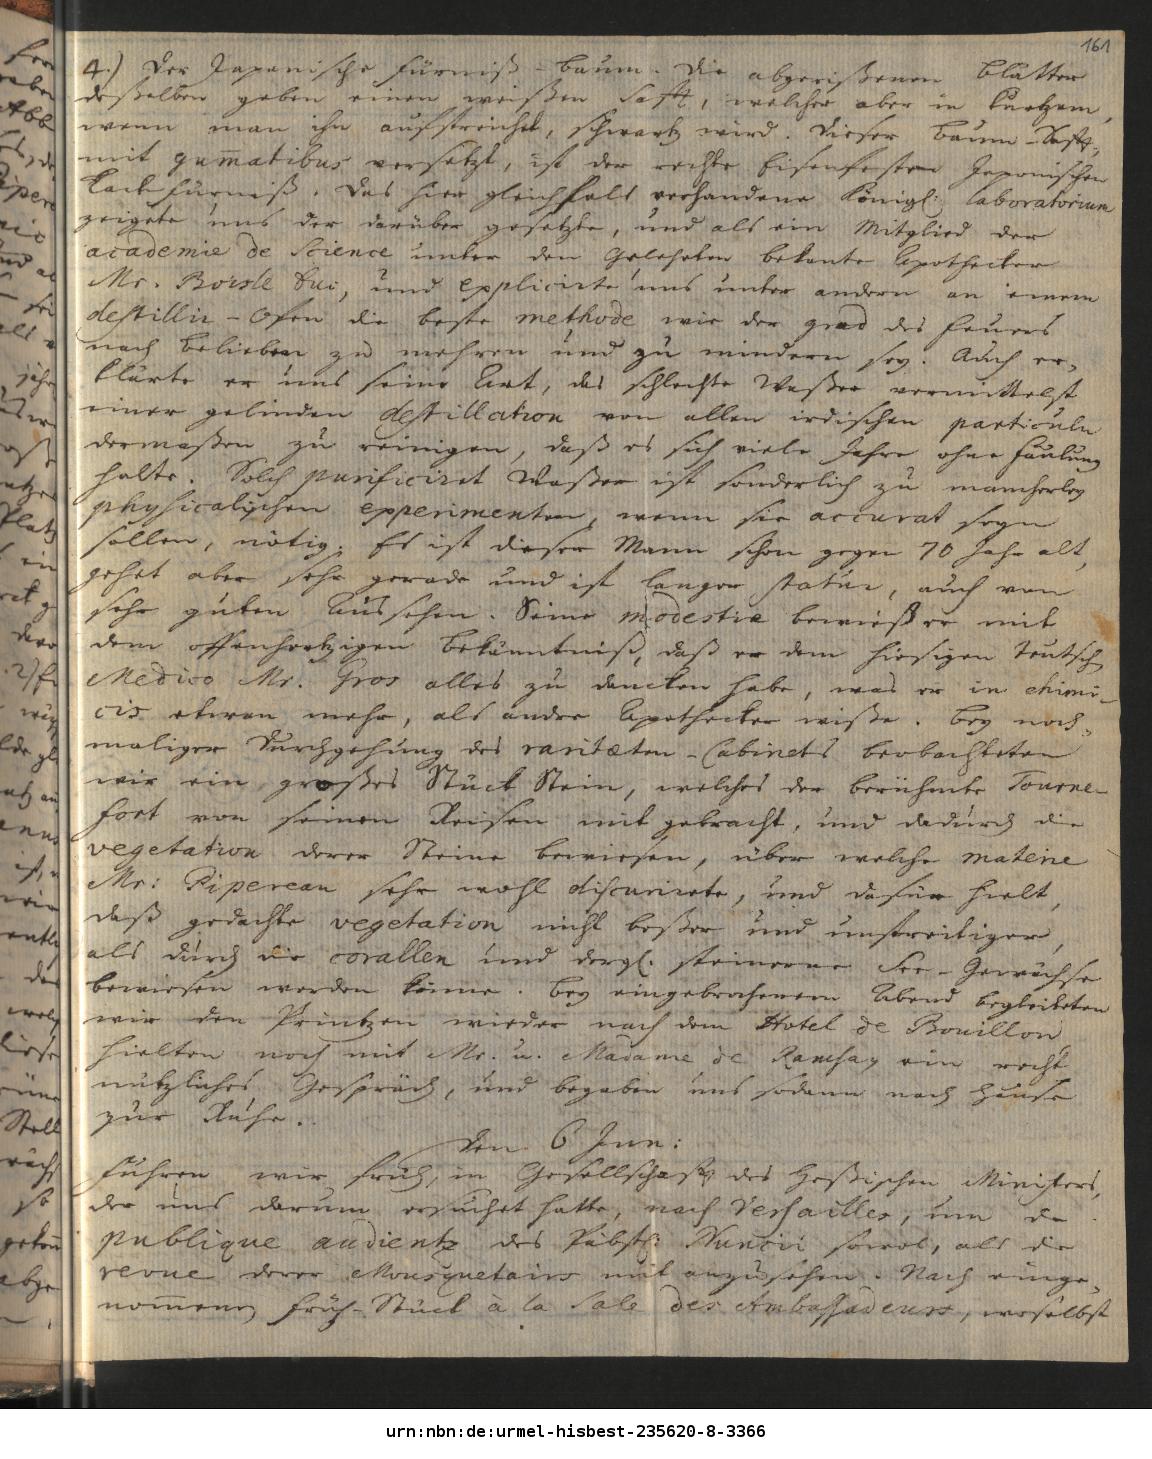 161
4.) Der Japanische fürniß-baum. Die abgerißenen blätter
deßelben geben einen weißen Safft, welcher aber in kurtzem,
wenn man ihn aufstreichet, schwartz wird. Dieser baum-Safft,
mit gum̃atibus versetzt, ist der rechte Eisenfesten Japonischen
Lack fürniß. Das hier gleichfals vorhandene Königl: laboratorium
zeigete uns der darüber gesetzte, und als ein Mitglied der
academie de Science unter den Gelehrten bekante Apothecker
Mr. Bois le Duc, und explicirte uns unter andern an einem
destillir-Ofen die beste methode wie der grad des feuers
nach belieben zu mehren und zu mindern sey. Auch er-
klärte er uns seine Art, das schlechte Waßer vermittelst
einer gelinden destillation von allen irdischen particuln
dermaßen zu reinigen, daß es sich viele Jahre ohne fäulung
halte. Solch purificiret Waßer ist sonderlich zu mancherley
physicalischen experimenten, wenn sie accurat seyn
sollen, nötig. Es ist dieser Mann schon gegen 70 Jahr alt,
gehet aber sehr gerade und ist langer statur, auch von
sehr guten Aussehen. Seine modestie bewieß er mit
dem offenhertzigen bekänntniß, daß er dem hiesigen teutsch
Medico Mr. Gros alles zu dancken habe, was er in chimi-
cis etwan mehr, als andre Apothecker wiße. bey noch-
maliger Durchgehung des raritæten-Cabinets beobachteten
wir ein großes Stück Stein, welches der berühmte Tourne-
fort von seinen Reisen mit gebracht, und dadurch die
vegetation derer Steine bewiesen, über welche materie
Mr: Pipereau sehr wohl discurirete, und dafür hielt,
daß gedachte vegetation nicht beßer und unstreitiger,
als durch die corallen und dergl. steinerne See-Gewächse
bewiesen werden könne. bey eingebrochenem Abend begleiteten
wir den Printzen wieder nach dem Hotel de Bouillon
hielten noch mit Mr. u. Madame de Ramsay ein recht
nützliches Gespräch, und begaben uns sodann nach Hause
zur Ruhe.
Den 6 Jun:
fuhren wir früh, in Gesellschafft des Heßischen Ministers,
der uns darum ersuchet hatte, nach Versailles, um die
publique audientz des Päbstl: Nuncii sowol, als die
revue derer Mousquetairs mit anzusehen. Nach einge-
nom̃enen früh-Stück à la Sale des Ambassadeurs, woselbst
urn:nbn:de:urmel-hisbest-235620-8-3366